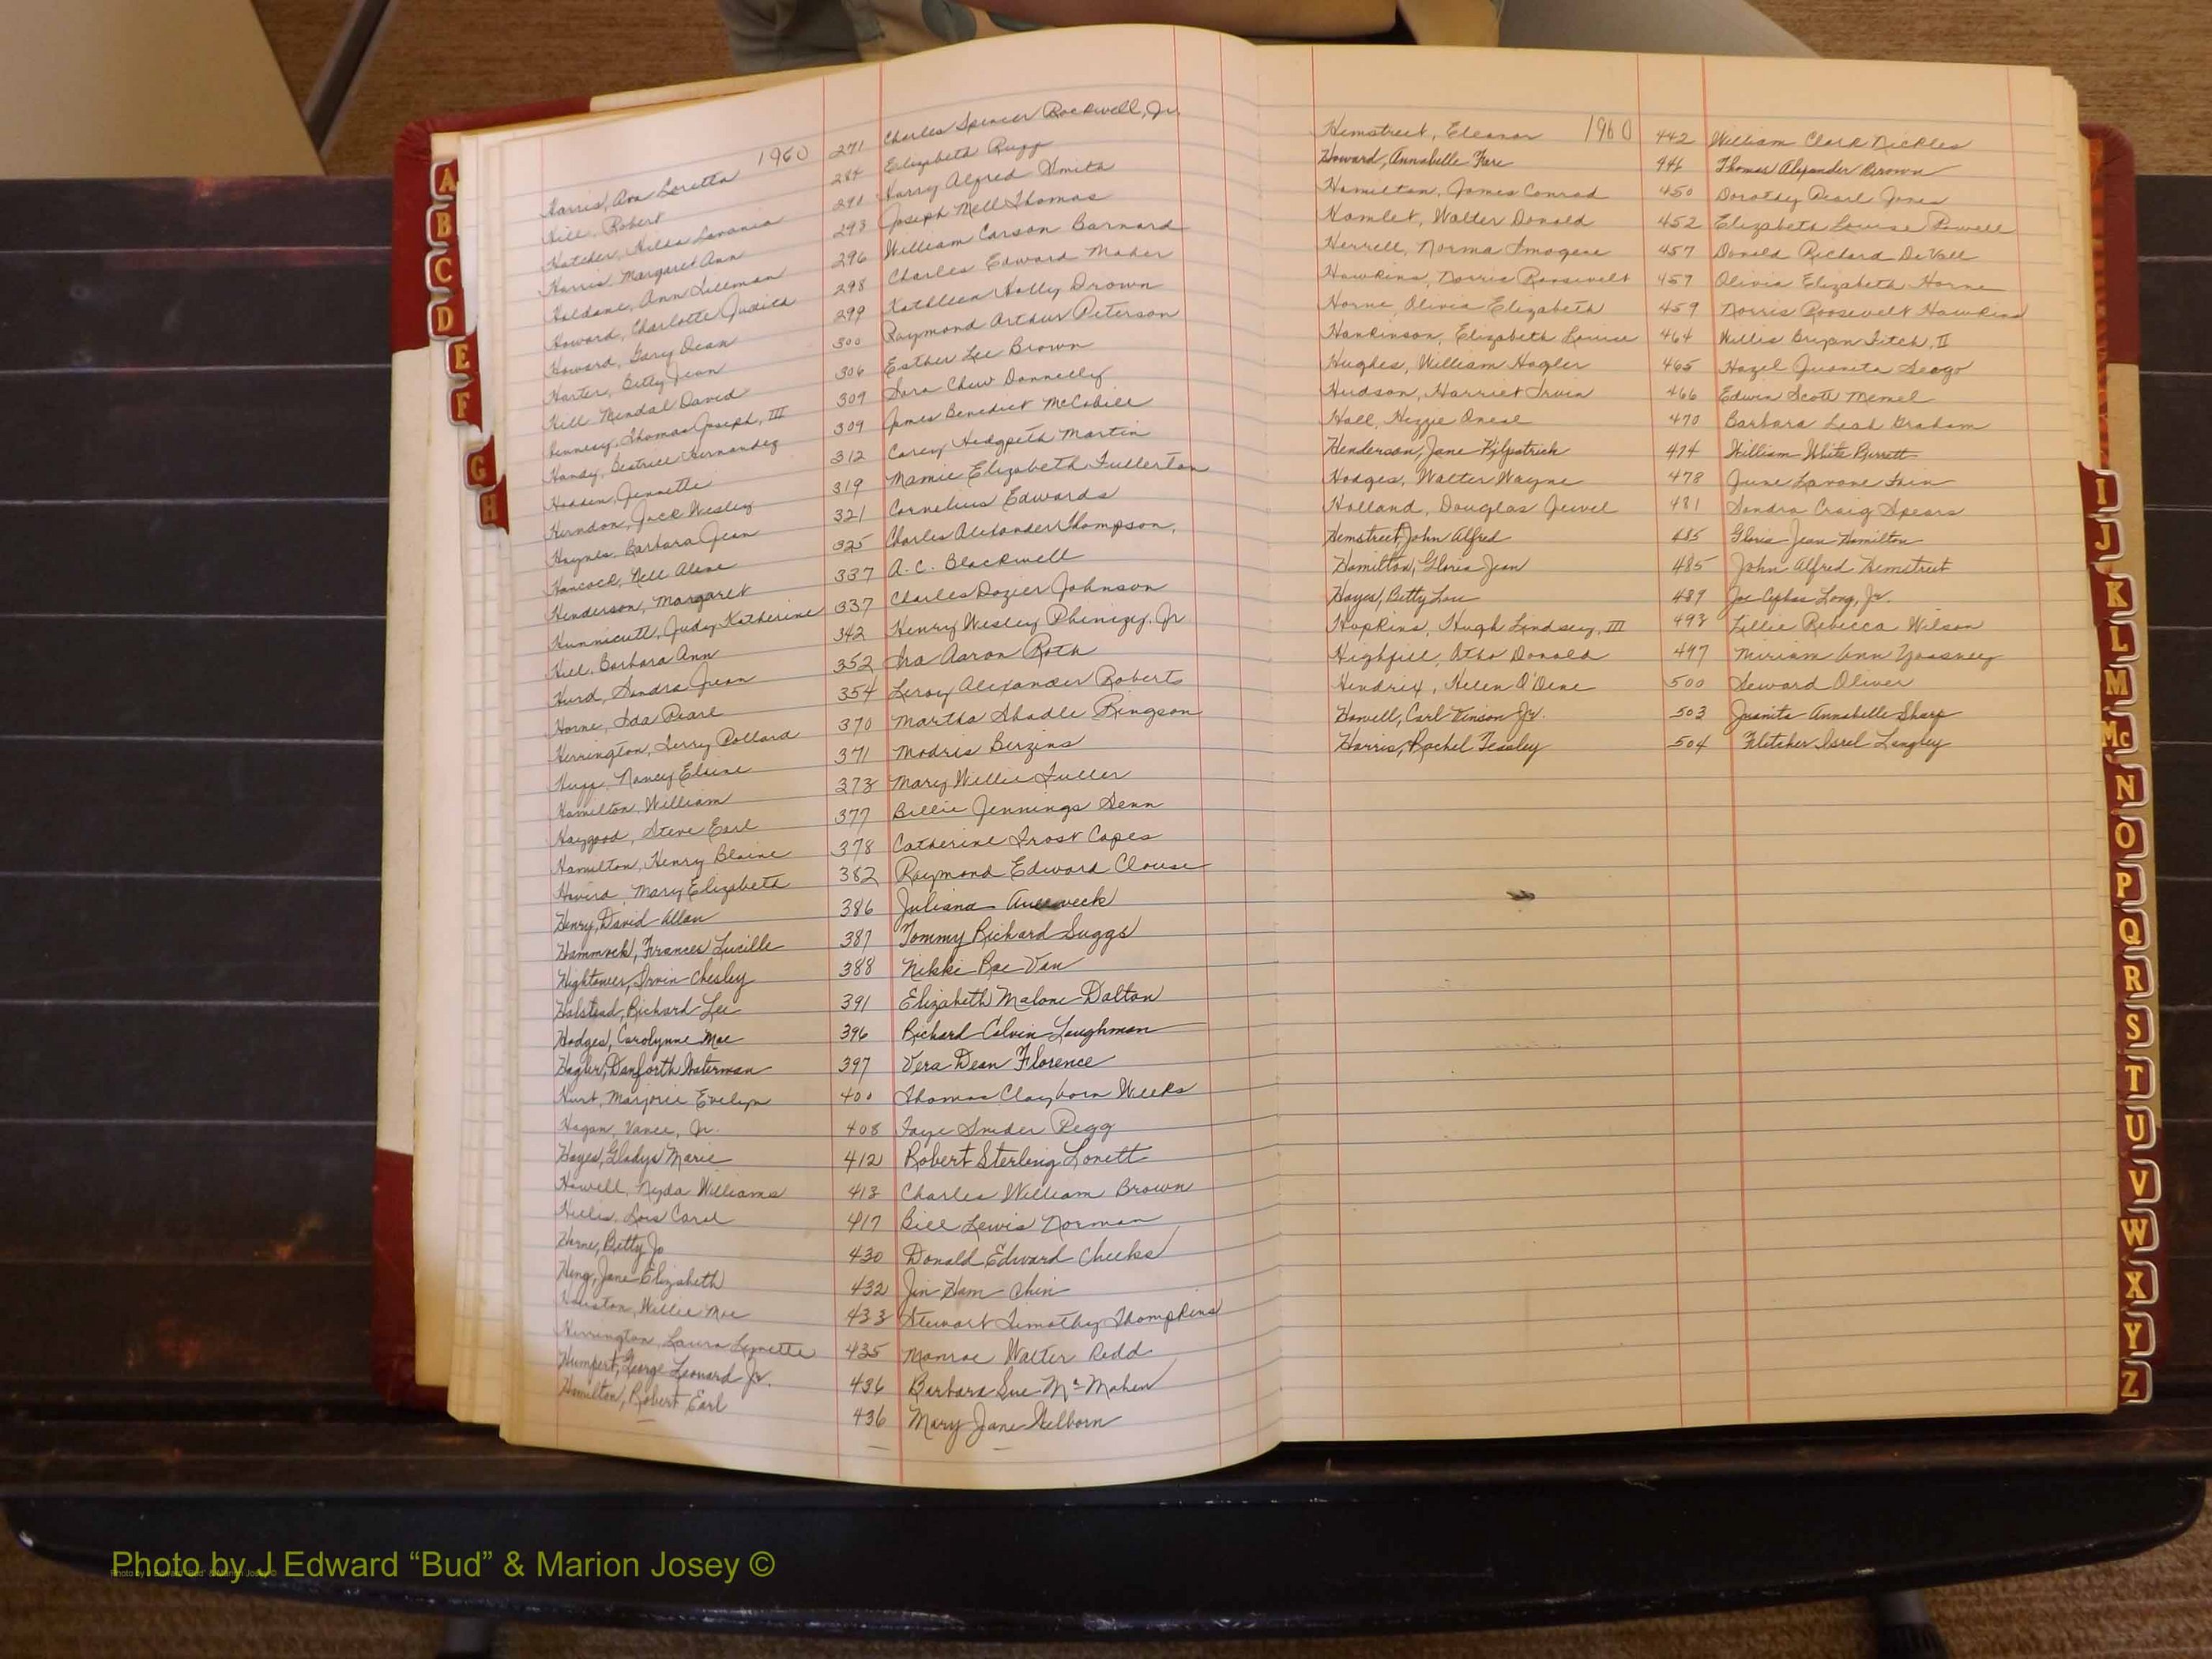 1960
Harris, Ann Loretta 271 Charles Spencer Rockwell, Jr.
Hill, Robert 284 Elizabeth Rugg
Hatcher, Hilda 291 Harry Alfred Smith
Harris, Margaret Ann 293 Joseph Mell Thomas
Haldane, Ann Tillman 296 William Carson Barnard
Howard, Charlotte Judith 298 Charles Edward Maher
Howard, Gary Dean 299 Kathleen Holly Brown
Harter, Betty Jean 300 Raymond Arthur Peterson
Hill, Mendal David 306 Esther Lee Brown
Hennesy, Thomas Joseph, III 309 Sara Chew Donnelly
Handy, Beatrice Hernandez 309 James Benedict McCahill
Hadden, Jennette 312 Carey Hedgpeth Martin
Herndon, Jack Wesley 319 Mamie Elizabeth Fullerton
Haynes, Barbara Jean 321 Cornelius Edwards
Hancock, Nell Alene 325 Charles Alexander Thompson,
Henderson, Margaret 337 A. C. Blackwell
Hunnicutt, Judy Katherine 337 Charles Dozier Johnson
Hill, Barbara Ann 342 Henry Wesley Phinizy, Jr
Hurd, Sandra Jean 352 Ira Aaron Roth
Horne, Ida Pearl 354 Leroy Alexander Roberts
Herrington, Terry Pollard 370 Martha Shadle Ringson
Hugg, Nancy Elaine 371 Modris Berzins
Hamilton, William 373 Mary Willie Fuller
Haygood, Steve Earl 377 Billie Jennings Senn
Hamilton, Henry Blaine 378 Catherine Frost Capes
Mary Elizabeth 382 Raymond Edward Clouse
Henry, David Allan 386 Juliana
Hammock, Frances Lucille 387 Tommy Richard Suggs
Hightower, Irvin Chesley 388 Nikki Rae Van
Halstead, Richard Lee 391 Elizabeth Malone Dalton
Hodges, Carolynne Mae 396 Richard Calvin Loughman
Hagler, Danforth Waterman 397 Vera Dean Florence
Hurt, Marjorie Evelyn 400 Thomas Clayborn Weeks
Hogan, Vance, Jr. 408 Faye Snider Pegg
Hayes, Gladys Marie 412 Robert Sterling Lonett
Howell, Nyda Williams 413 Charles William Brown
Hillis, Lois Carol 417 Bill Lewis Norman
Horne, Betty Jo 430 Donald Edward Cheeks
Heng, Jane Elizabeth 432 Jin Ham Chin
Houston, Willie Mae 433 Stewart Timothy Thompkins
Herrington, Laura Lynette 435 Monroe Walter Redd
Humpert, George Leonard Jr. 436 Barbara Sue McMahen
Hamilton, Robert Earl 436 Mary Jane Welborn
1960
Hemstreet, Eleanor 442 William Clark Nickles
Howard, Annabelle 446 Thomas Alexander Brown
Hamilton, James Conrad 450 Dorothy Pearl Jones
Hamlet, Walter Donald 452 Elizabeth Louise Powell
Herrell, Norma Imogene 457 Donald Richard DeVall
Hawkins, Norris Roosevelt 459 Olivia Elizabeth Horne
Horne, Olivia Elizabeth 459 Norris Roosevelt Hawkins
Hankinson, Elizabeth Louise 464 Willis Bryan Fitch, II
Hughes, William Hagler 465 Hazel Juanita Seago
Hudson, Harriet Irvin 466 Edwin Scott Memel
Hall, Hezzie Oneal 470 Barbara Leah Graham
Henderson, Jane Kilpatrick 474 William White
Hodges, Walter Wayne 478 June Lavone Fain
Holland, Douglas Jewel 481 Sandra Craig Spears
Hemstreet, John Alfred 485 Gloria Jean Hamilton
Hamilton, Gloria Jean 485 John Alfred Hemstreet
Hayes, Betty Lou 489 Joe Long, Jr.
Hopkins, Hugh Lindsey, III 493 Lillie Rebecca Wilson
Highfill, Otho Donald 497 Miriam Ann
Hendrix, Helen O'Dene 500 Seward Oliver
Howell, Carl Vinson Jr. 503 Juanita Annabelle Sharp
Harris, Rachel Teasley 504 Fletcher Isrel Langley
A
B
C
D
E
F
G
H
I
J
K
L
M
Mc
N
O
P
Q
R
S
T
U
V
W
X
Y
Z
Photo by J Edward “Bud” & Marion Josey ©
Photo by J Edward “Bud” & Marion Josey ©